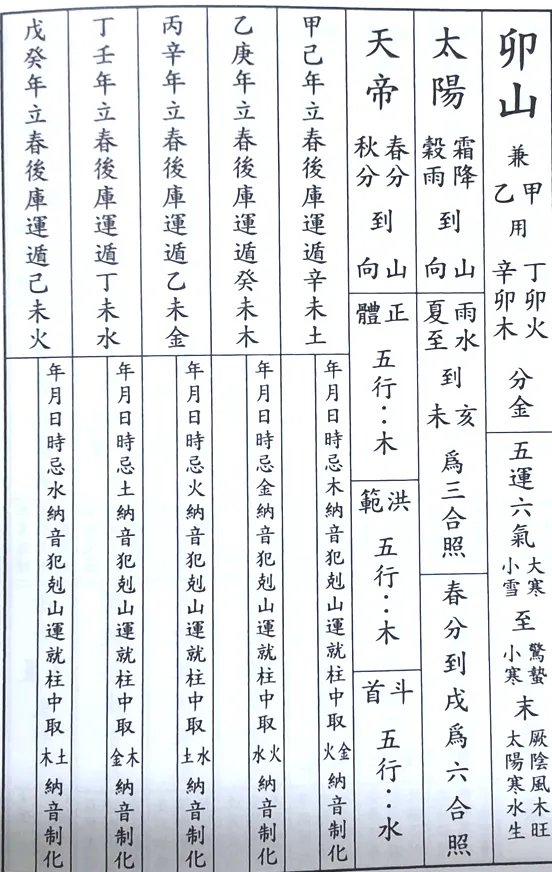 卯山兼甲乙用丁卯火辛卯木分金
五運六氣大寒小雪至驚蟄小寒末厥陰風木旺太陽寒水生
太陽霜降穀雨到山向
雨水夏至到亥未為三合照
春分到戌為六合照
天帝春分秋分到山向
正體五行：木
洪範五行：木
斗首五行：水
甲己年立春後庫運遁辛未土
年月日時忌木納音犯剋山運就柱中取金火納音制化
乙庚年立春後庫運遁癸未木
年月日時忌金納音犯剋山運就柱中取火水納音制化
丙辛年立春後庫運遁乙未金
年月日時忌火納音犯剋山運就柱中取水土納音制化
丁壬年立春後庫運遁丁未水
年月日時忌土納音犯剋山運就柱中取木金納音制化
戊癸年立春後庫運遁己未火
年月日時忌水納音犯剋山運就柱中取土木納音制化